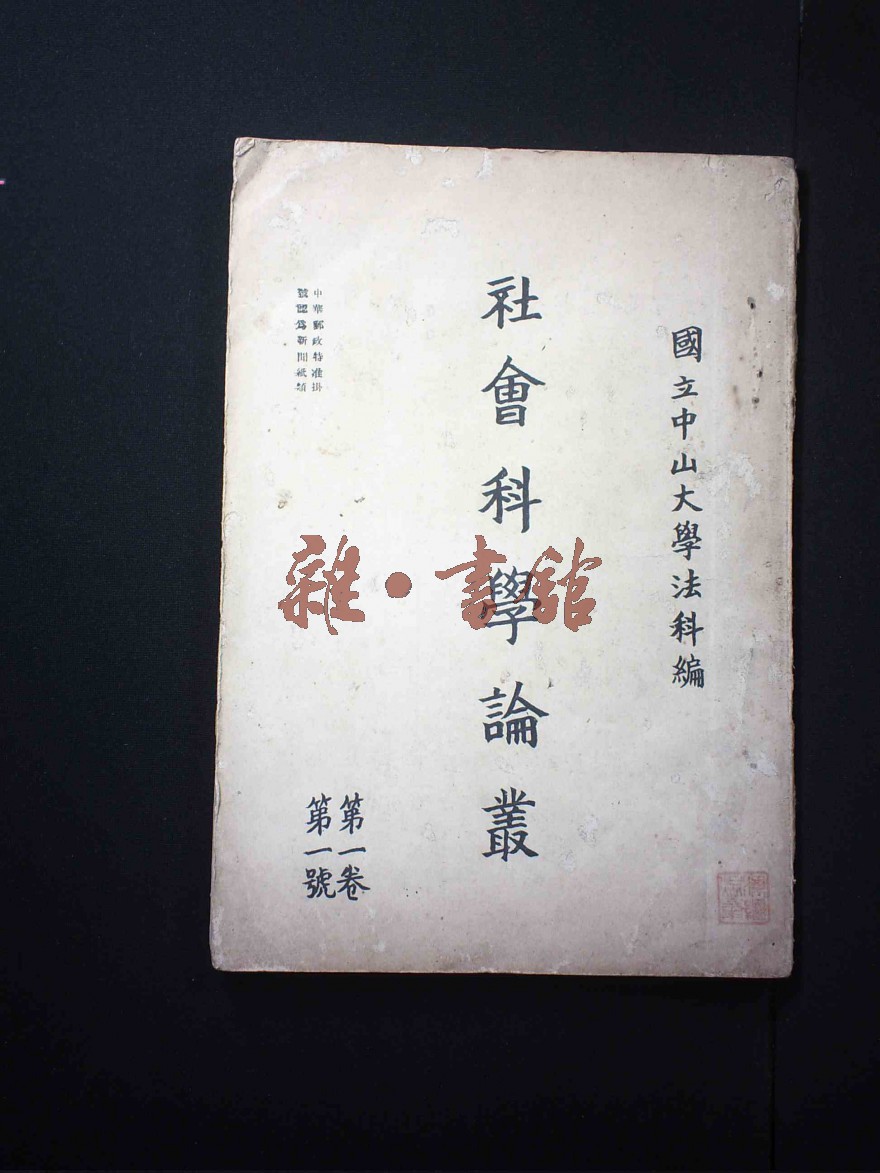 國立中山大學法科編
社會科學論叢
第一卷
第一號
中華郵政特准掛
號認爲新聞紙類
雜·書館